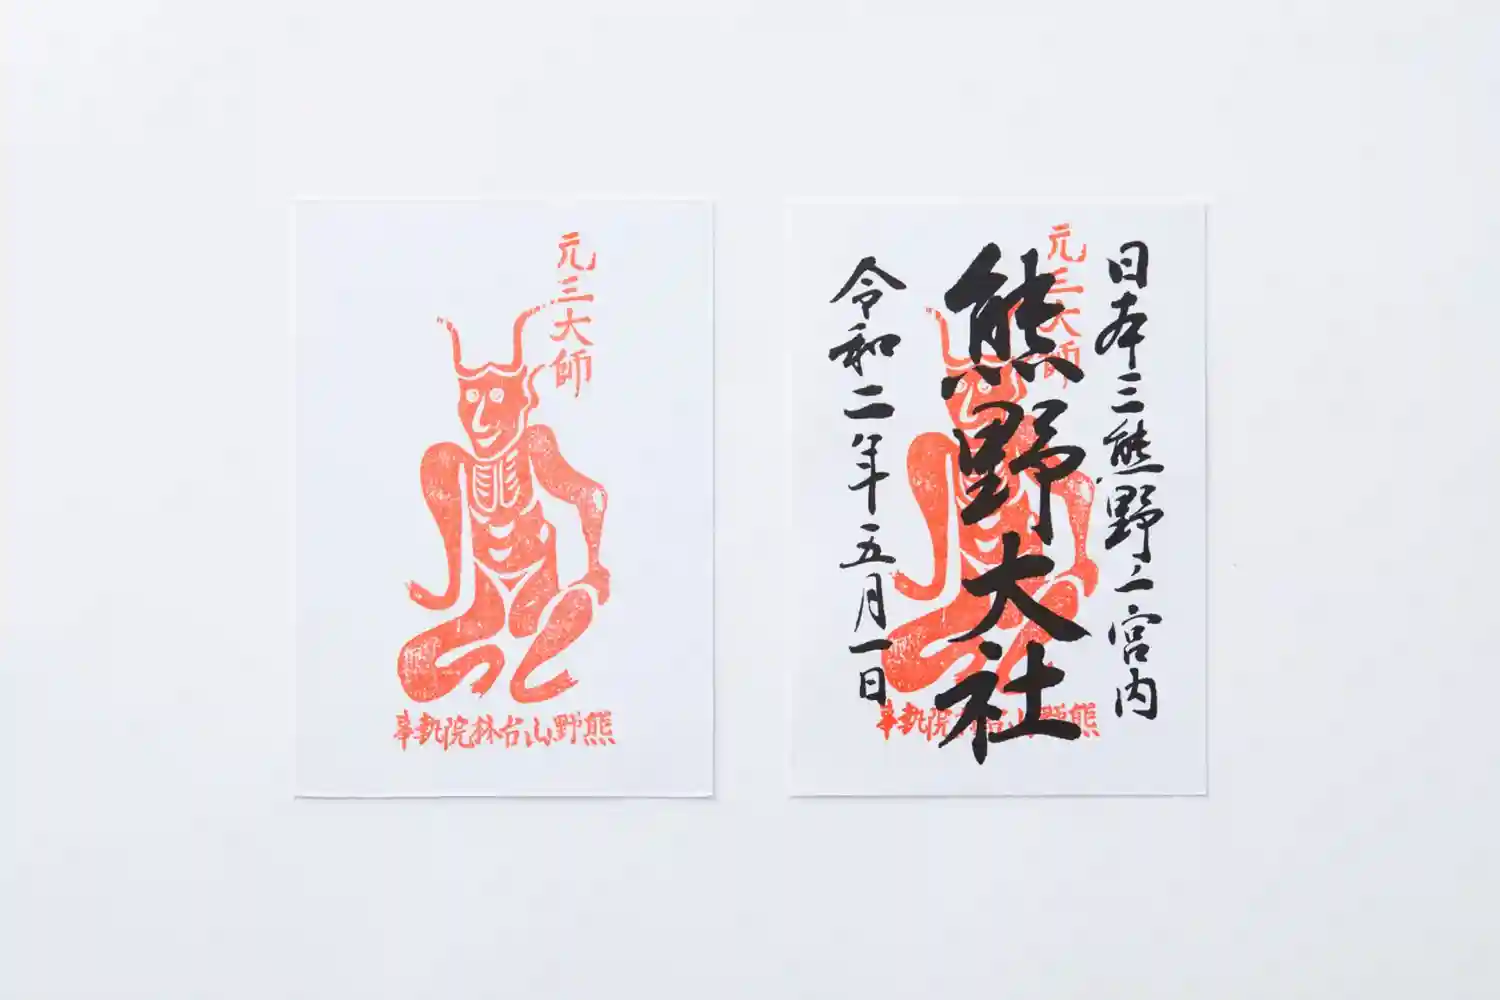 元三大師
熊野山台林院執事
日本三熊野ノ宮内
熊野大社
令和二年五月一日
元三大師
熊野山台林院執事